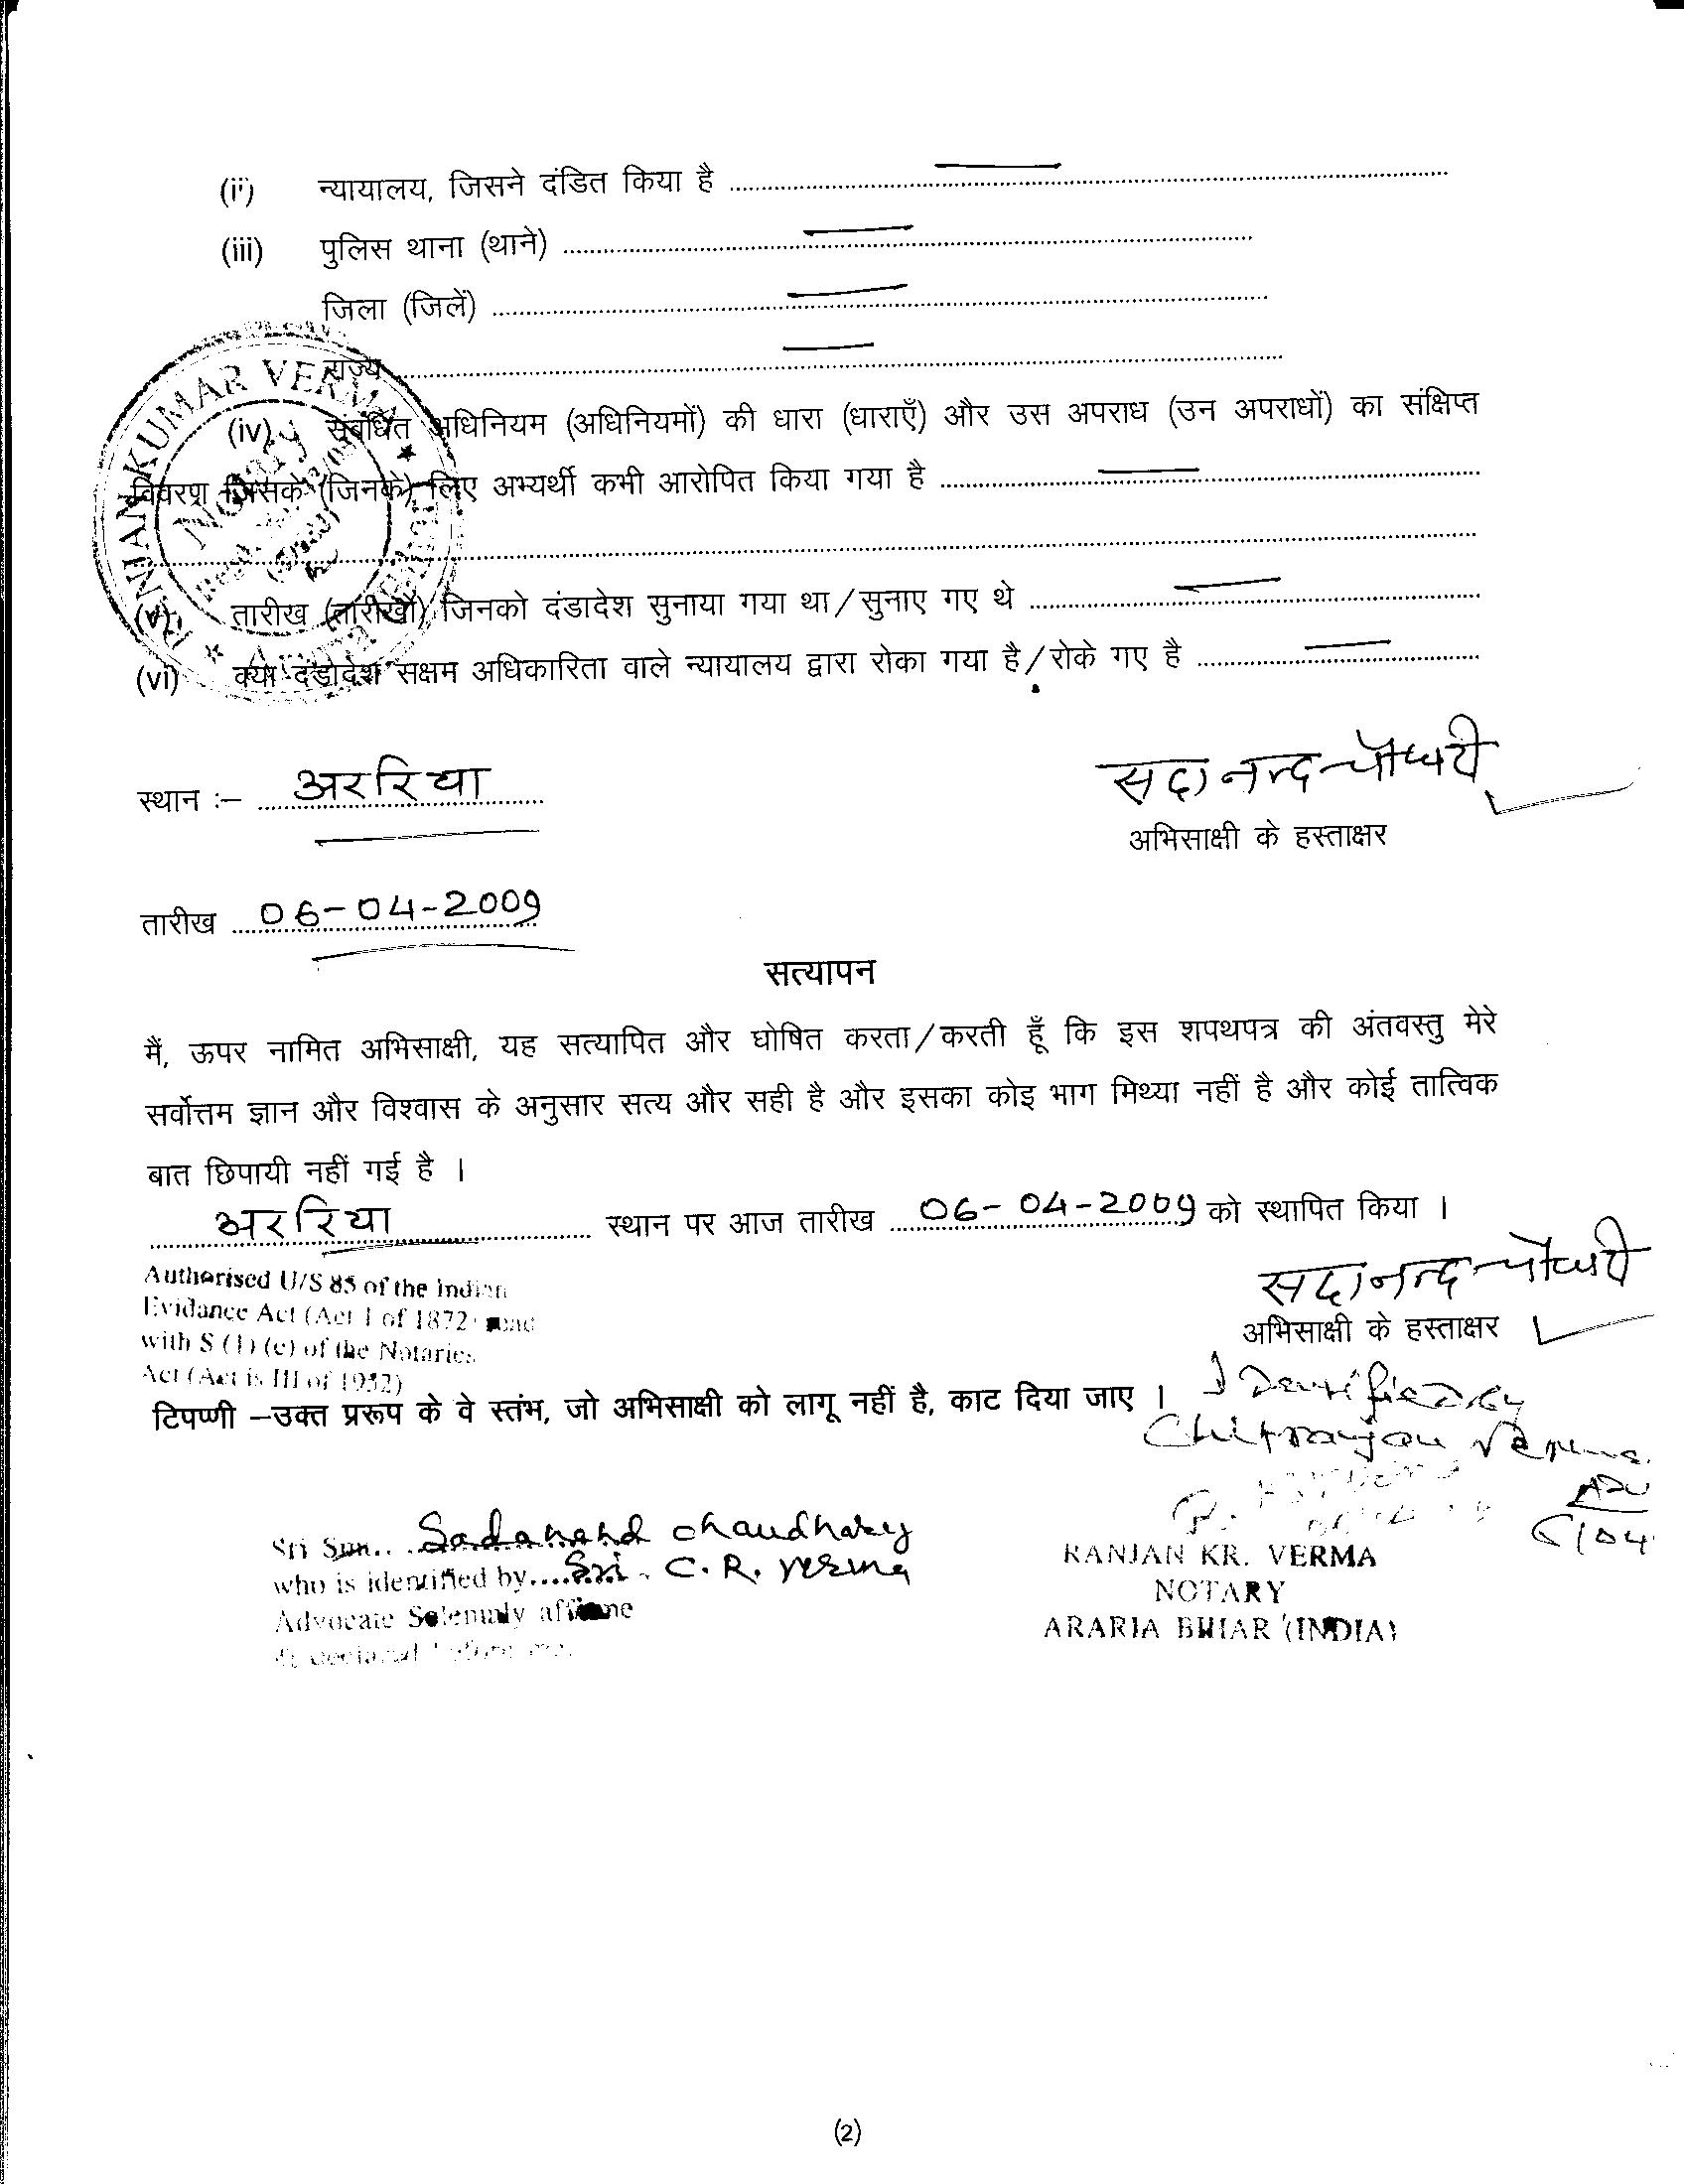 (ii) न्यायालय, जिसने दंडित किया है
(iii) पुलिस थाना (थाने)
जिला (जिलें)
राज्य
(iv) संबंधित अधिनियम (अधिनियमों) की धारा (धाराएँ) और उस अपराध (उन अपराधों) का संक्षिप्त
विवरण जिसके (जिनके) लिए अभ्यर्थी कभी आरोपित किया गया है
(v) तारीख (तारीखों) जिनको दंडादेश सुनाया गया था/सुनाए गए थे
(vi) क्या दंडादेश सक्षम अधिकारिता वाले न्यायालय द्वारा रोका गया है/रोके गए है
RANJAN KUMAR VERMA
Notary
स्थान :– अररिया
सदानन्द चौधरी
अभिसाक्षी के हस्ताक्षर
तारीख 06-04-2009
सत्यापन
मैं, ऊपर नामित अभिसाक्षी, यह सत्यापित और घोषित करता/करती हूँ कि इस शपथपत्र की अंतवस्तु मेरे
सर्वोत्तम ज्ञान और विश्वास के अनुसार सत्य और सही है और इसका कोइ भाग मिथ्या नहीं है और कोई तात्विक
बात छिपायी नहीं गई है ।
अररिया स्थान पर आज तारीख 06-04-2009 को स्थापित किया ।
सदानन्द चौधरी
अभिसाक्षी के हस्ताक्षर
Authorised U/S 85 of the Indian
Evidance Act (Act I of 1872 read
with S (1) (e) of the Notaries
Act (Act is III of 1952)
टिपण्णी –उक्त प्ररूप के वे स्तंभ, जो अभिसाक्षी को लागू नहीं है, काट दिया जाए ।
Identified by
Chitranjan Verma
Adv
6/04
Sri Smt. Sadanand Chaudhary
who is identified by Sri C. R. Verma
Advocate Solemnly affirme
RANJAN KR. VERMA
NOTARY
ARARIA BIHAR (INDIA)
(2)